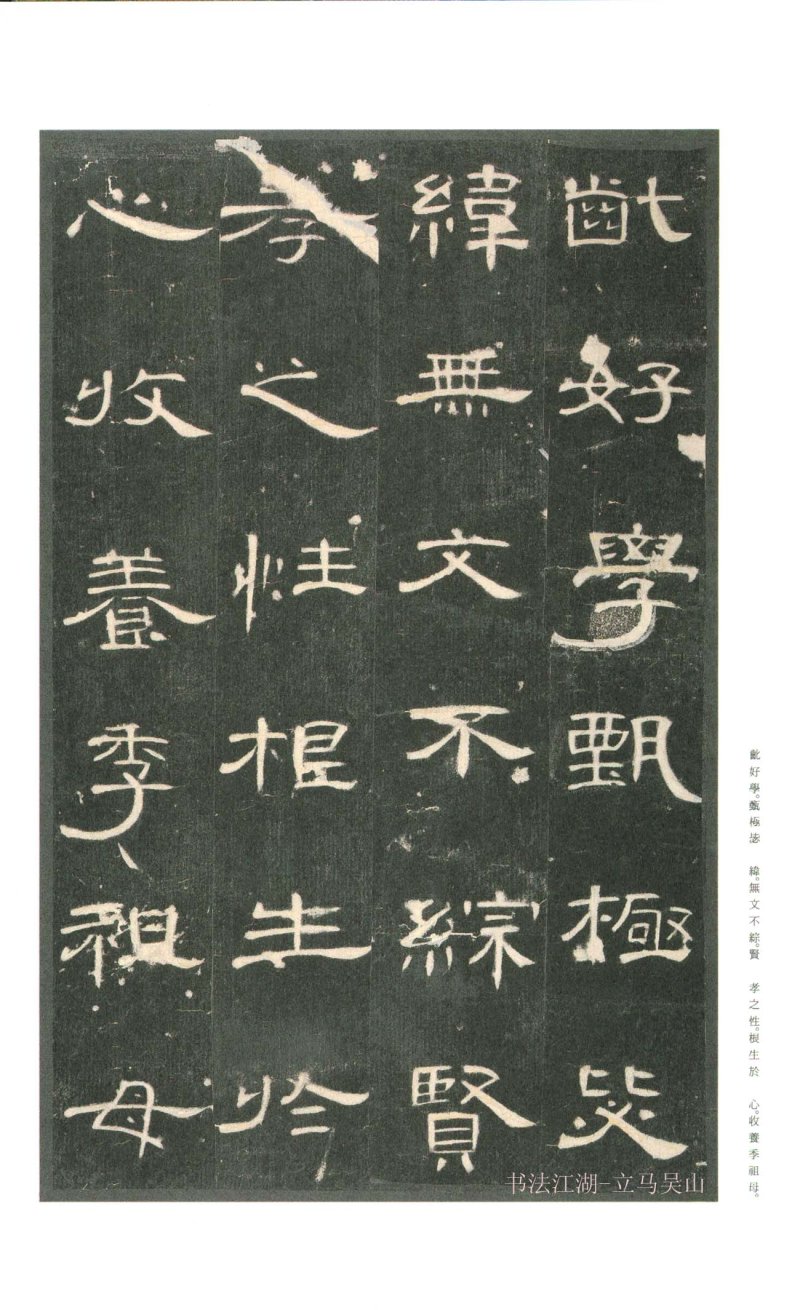 齔好學甄極毖
緯無文不綜賢
孝之性根生於
心收養季祖母
齔好學。甄極毖　緯。無文不綜。賢　孝之性。根生於　心。收養季祖母。
书法江湖-立马吴山